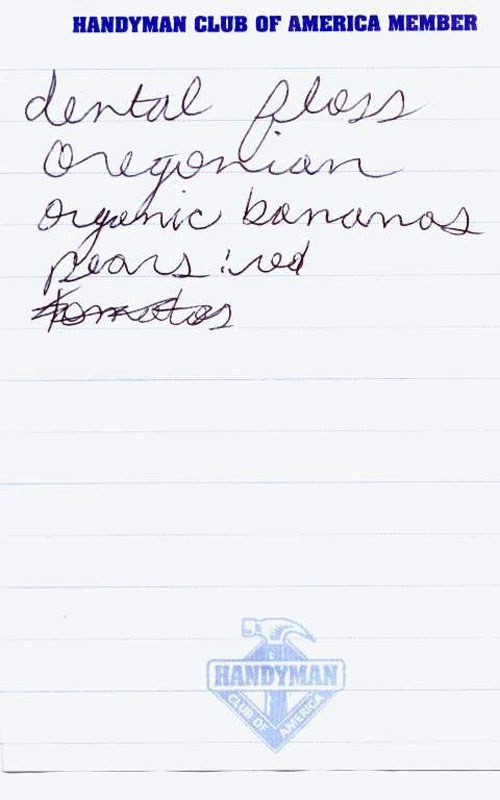 HANDYMAN CLUB OF AMERICA MEMBER
dental floss
Oregonian
organic bananas
pears : red
tomatos
HANDYMAN
CLUB OF AMERICA